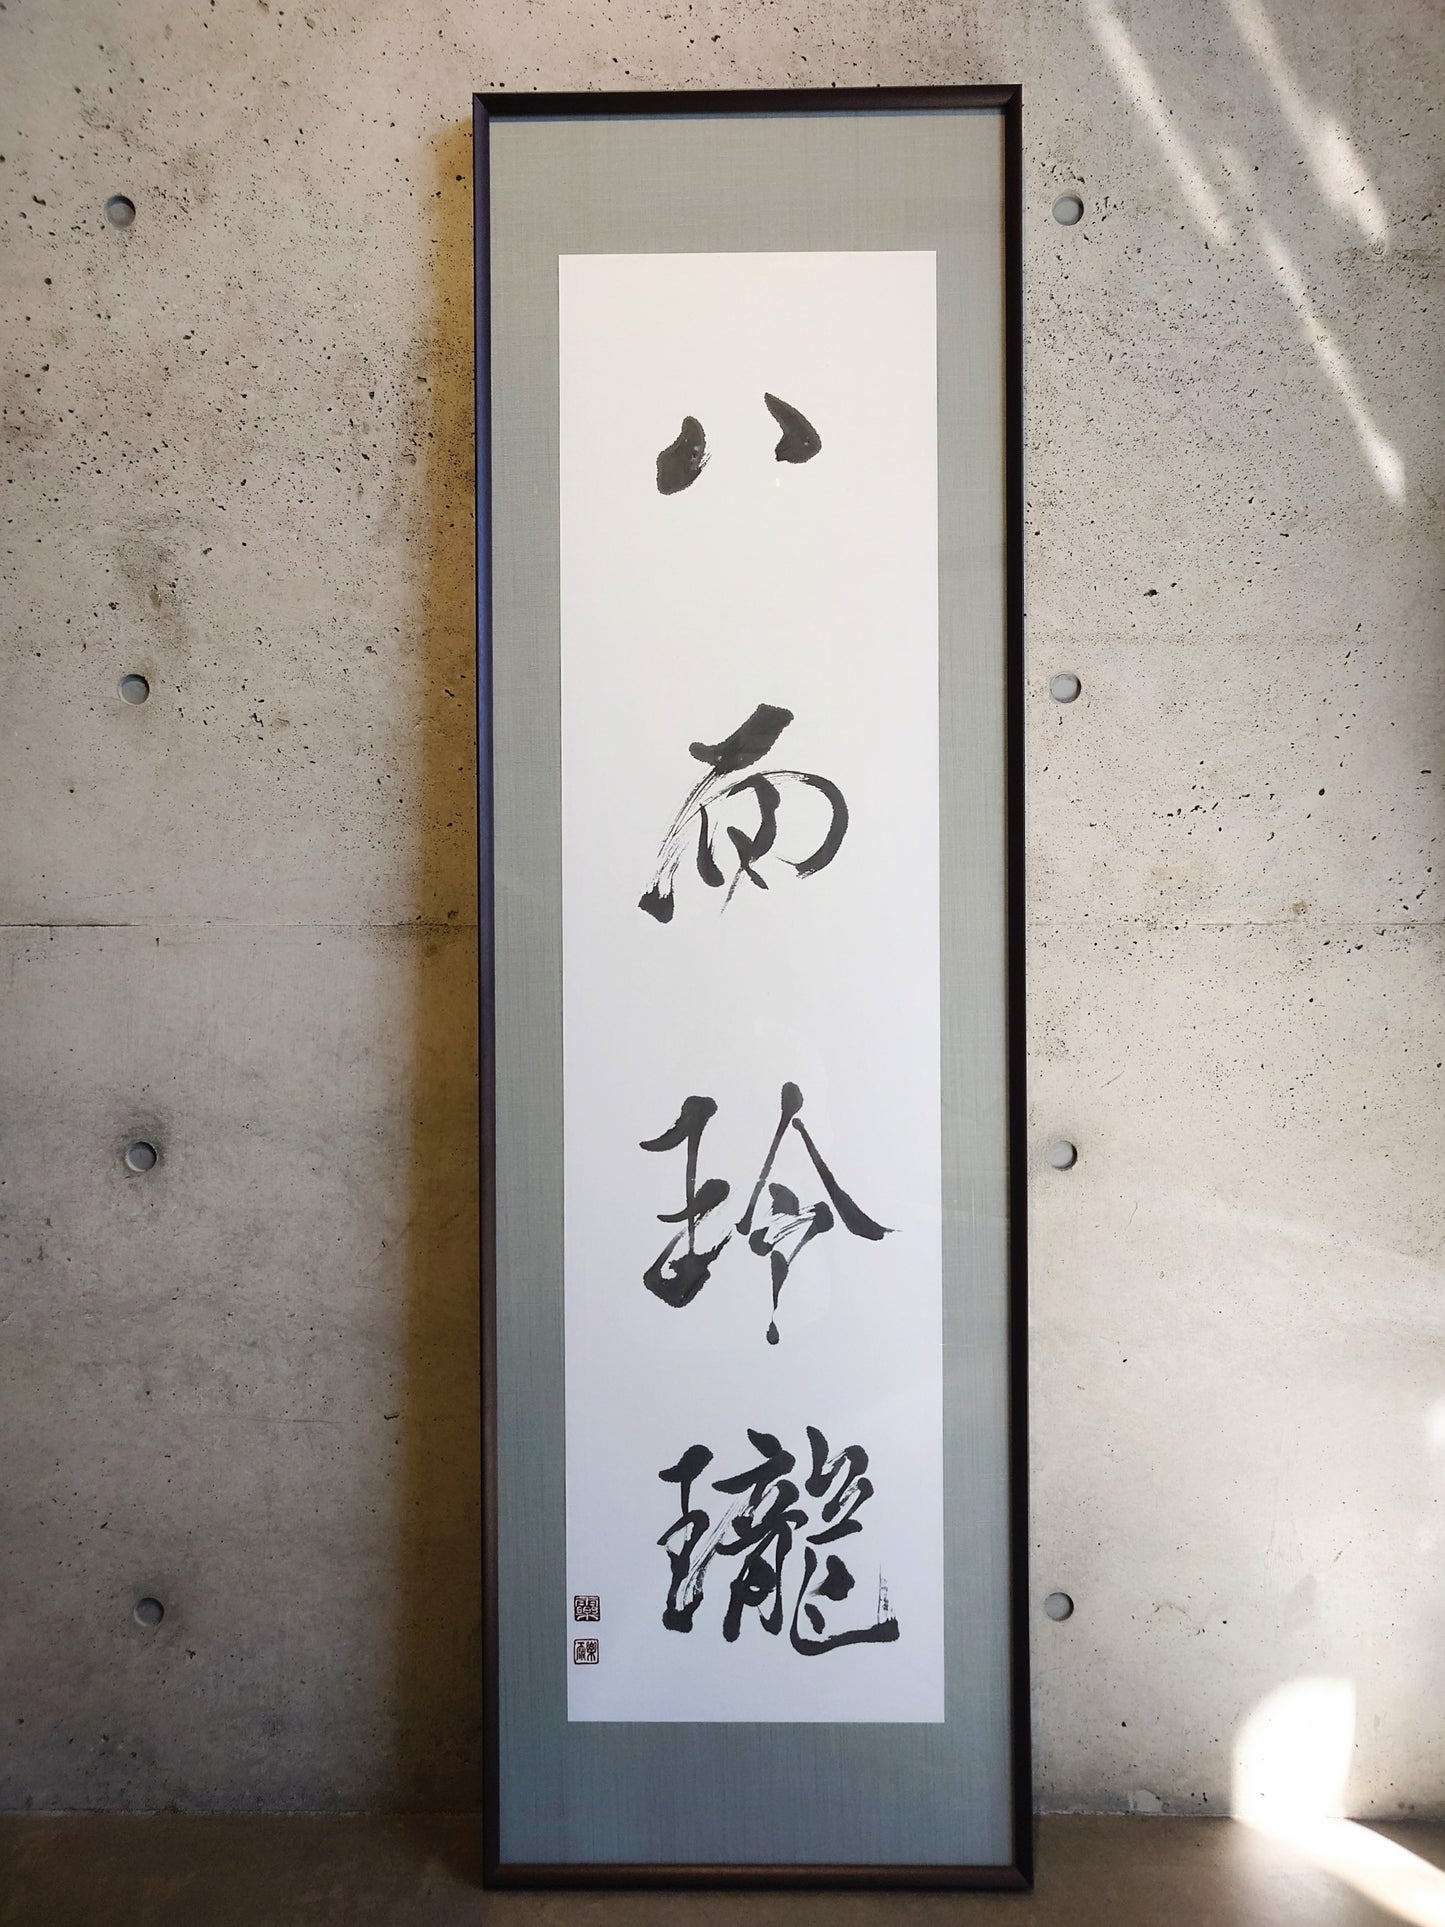 八面玲瓏